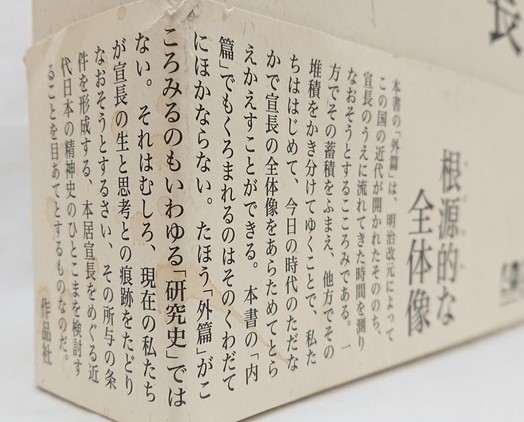 長
根源的な
全体像
本書の「外篇」は、明治改元によって
この国の近代が開かれたそののち、
宣長のうえに流れてきた時間を測り
なおそうとするこころみである。一
方でその蓄積をふまえ、他方でその
堆積をかき分けてゆくことで、私た
ちははじめて、今日の時代のただな
かで宣長の全体像をあらためてとら
えかえすことができる。本書の「内
篇」でもくろまれるのはそのくわだて
にほかならない。たほう「外篇」がこ
ころみるのもいわゆる「研究史」では
ない。それはむしろ、現在の私たち
が宣長の生と思考との痕跡をたどり
なおそうとするさい、その所与の条
件を形成する、本居宣長をめぐる近
代日本の精神史のひとこまを検討す
ることを目あてとするものなのだ。
作品社